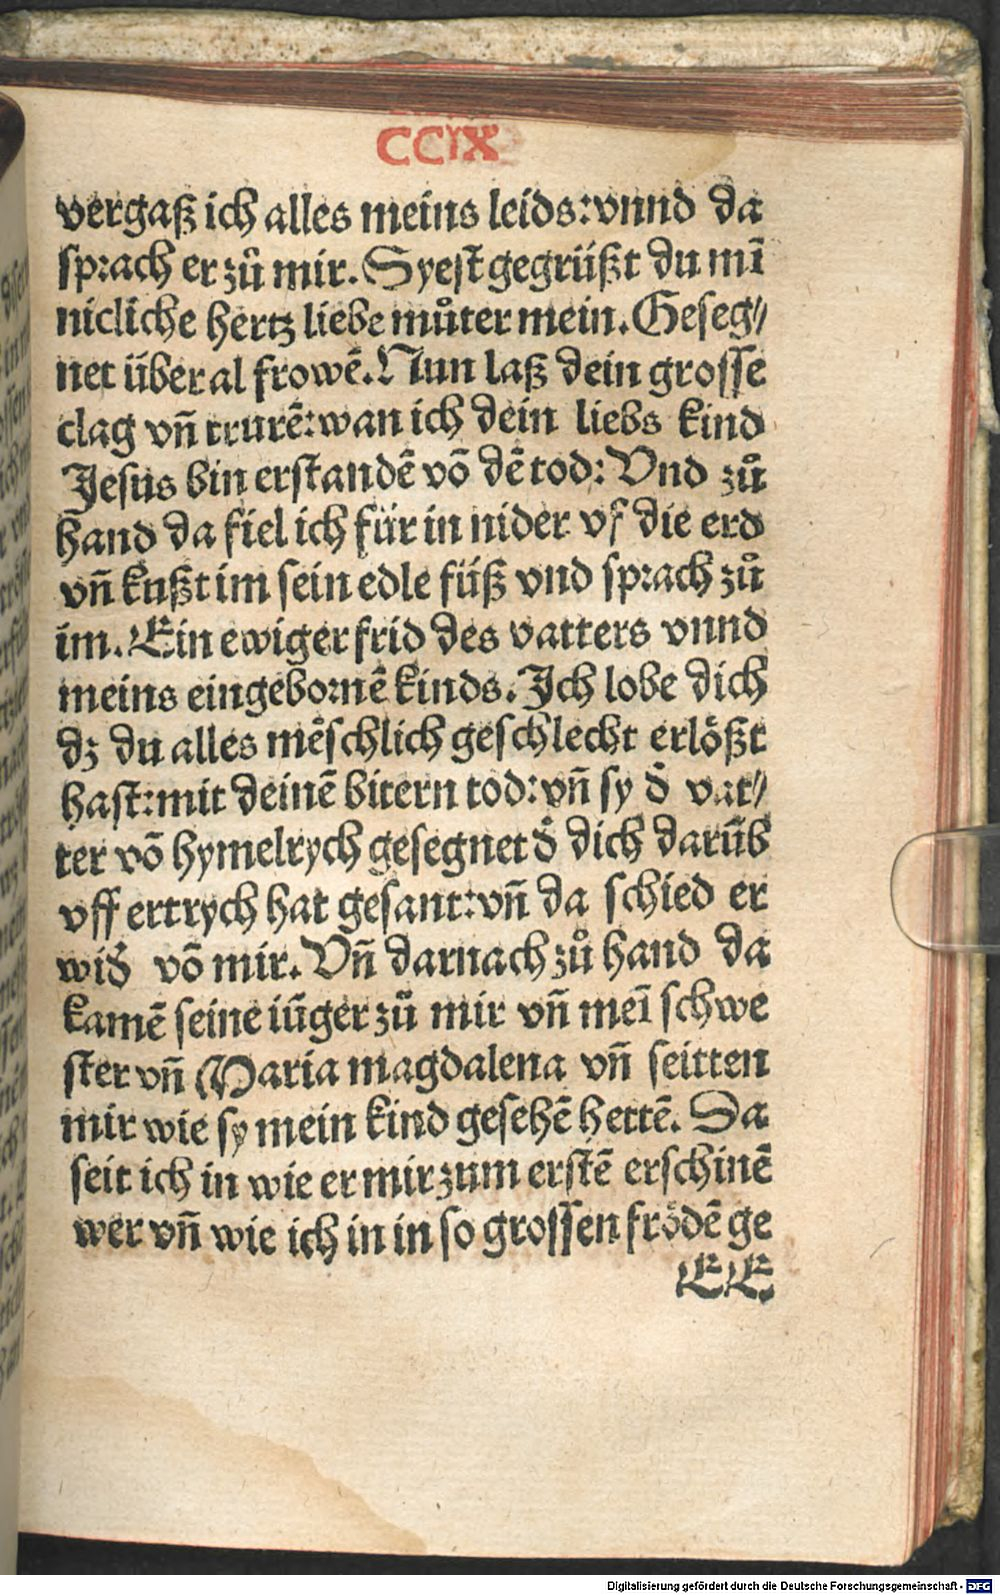 CCIX
vergaß ich alles meins leids: vnnd da
sprach er zů mir. Syest gegrüßt du mī
nicliche hertz liebe můter mein. Geseg⸗
net über al frowē. Nun laß dein grosse
clag vñ trurē: wan ich dein liebs kind
Jesus bin erstandē vō dē tod: Vnd zů
hand da fiel ich für in nider vf die erd
vñ kußt im sein edle füß vnd sprach zů
im. Ein ewiger frid des vatters vnnd
meins eingebornē kinds. Ich lobe dich
dz du alles mēschlich geschlecht erlößt
hast: mit deinē bitern tod: vñ sy d̄ vat⸗
ter vō hymelrych gesegnet d̄ dich darūb
vff ertrych hat gesant: vñ da schied er
wid̄ vō mir. Vñ darnach zů hand da
kamē seine iūger zů mir vñ meī schwe
ster vñ Maria magdalena vñ seitten
mir wie sy mein kind gesehē hettē. Da
seit ich in wie er mir zum erstē erschinē
wer vñ wie ich in in so grossen frödē ge
EE
Digitalisierung gefördert durch die Deutsche Forschungsgemeinschaft - DFG